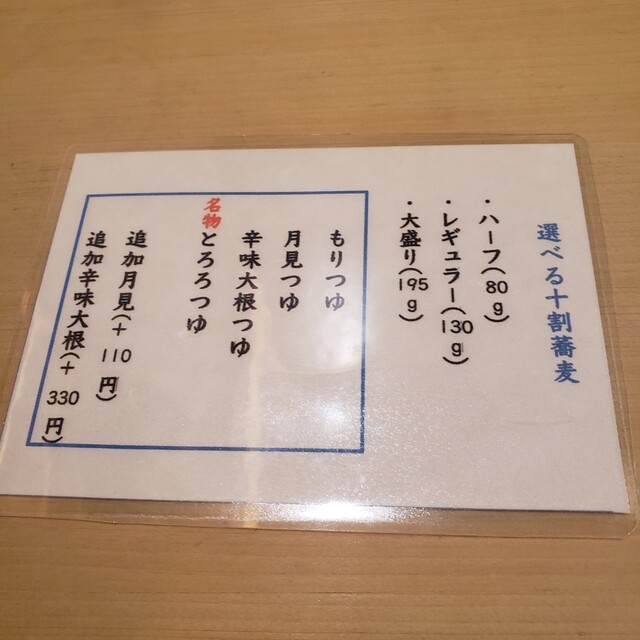 選べる十割蕎麦
・ハーフ(80g)
・レギュラー(130g)
・大盛り(195g)
もりつゆ
月見つゆ
辛味大根つゆ
名物とろろつゆ
追加月見(+110円)
追加辛味大根(+330円)